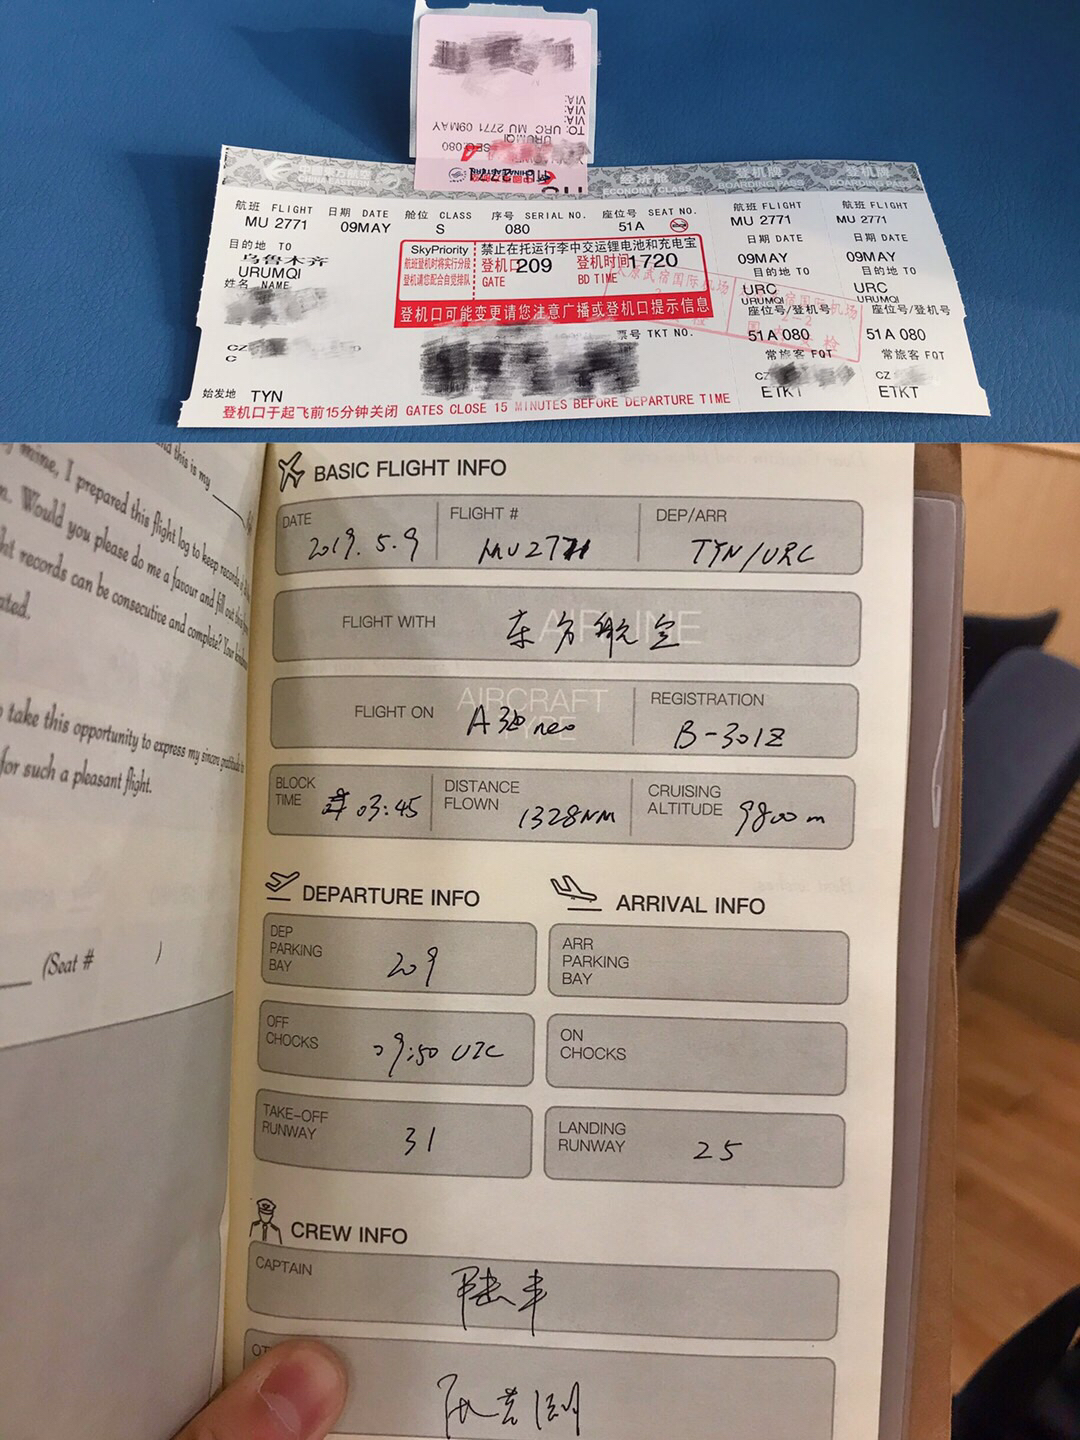 VIA:
VIA:
VIA:
TO: URC MU 2771 09MAY
URUMQI
SEC:080
中国东方航空
CHINA EASTERN
经济舱
ECONOMY CLASS
登机牌
BOARDING PASS
登机牌
BOARDING PASS
航班 FLIGHT 日期 DATE 舱位 CLASS 序号 SERIAL NO. 座位号 SEAT NO.
MU 2771 09MAY S 080 51A
目的地 TO
乌鲁木齐
URUMQI
姓名 NAME
CZ
C
始发地 TYN
SkyPriority
航班登机时将实行分段
登机请您配合自觉排队
禁止在托运行李中交运锂电池和充电宝
登机口209 登机时间1720
GATE BD TIME
登机口可能变更请您注意广播或登机口提示信息
票号 TKT NO.
登机口于起飞前15分钟关闭 GATES CLOSE 15 MINUTES BEFORE DEPARTURE TIME
太原武宿国际机场
航班 FLIGHT
MU 2771
日期 DATE
09MAY
目的地 TO
URC
URUMQI
座位号/登机号
51A 080
常旅客 FQT
CZ
ETKT
航班 FLIGHT
MU 2771
日期 DATE
09MAY
目的地 TO
URC
URUMQI
座位号/登机号
51A 080
常旅客 FQT
CZ
ETKT
and this is my
mine, I prepared this flight log to keep records
Would you please do me a favour and fill out
records can be consecutive and complete? Your
take this opportunity to express my sincere gratitude
for such a pleasant flight.
(Seat # )
BASIC FLIGHT INFO
DATE 2019.5.9 FLIGHT # MU2771 DEP/ARR TYN/URC
FLIGHT WITH AIRLINE 东方航空
FLIGHT ON AIRCRAFT TYPE A320neo REGISTRATION B-301Z
BLOCK TIME 03:45 DISTANCE FLOWN 1328NM CRUISING ALTITUDE 9800m
DEPARTURE INFO
DEP PARKING BAY 209
OFF CHOCKS 09:50 UTC
TAKE-OFF RUNWAY 31
ARRIVAL INFO
ARR PARKING BAY
ON CHOCKS
LANDING RUNWAY 25
CREW INFO
CAPTAIN